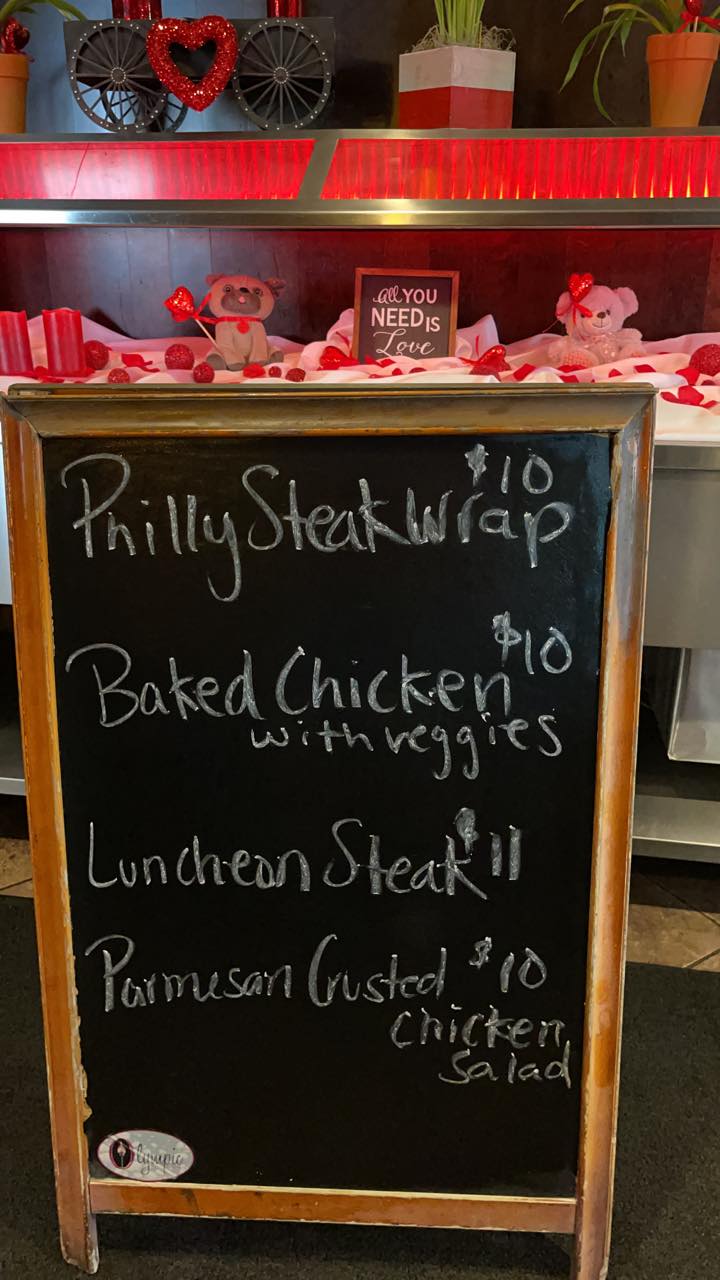 all YOU
NEED IS
Love
$10
Philly Steak Wrap
$10
Baked Chicken
with veggies
Luncheon Steak $11
Parmesan Crusted $10
chicken
salad
Olympic